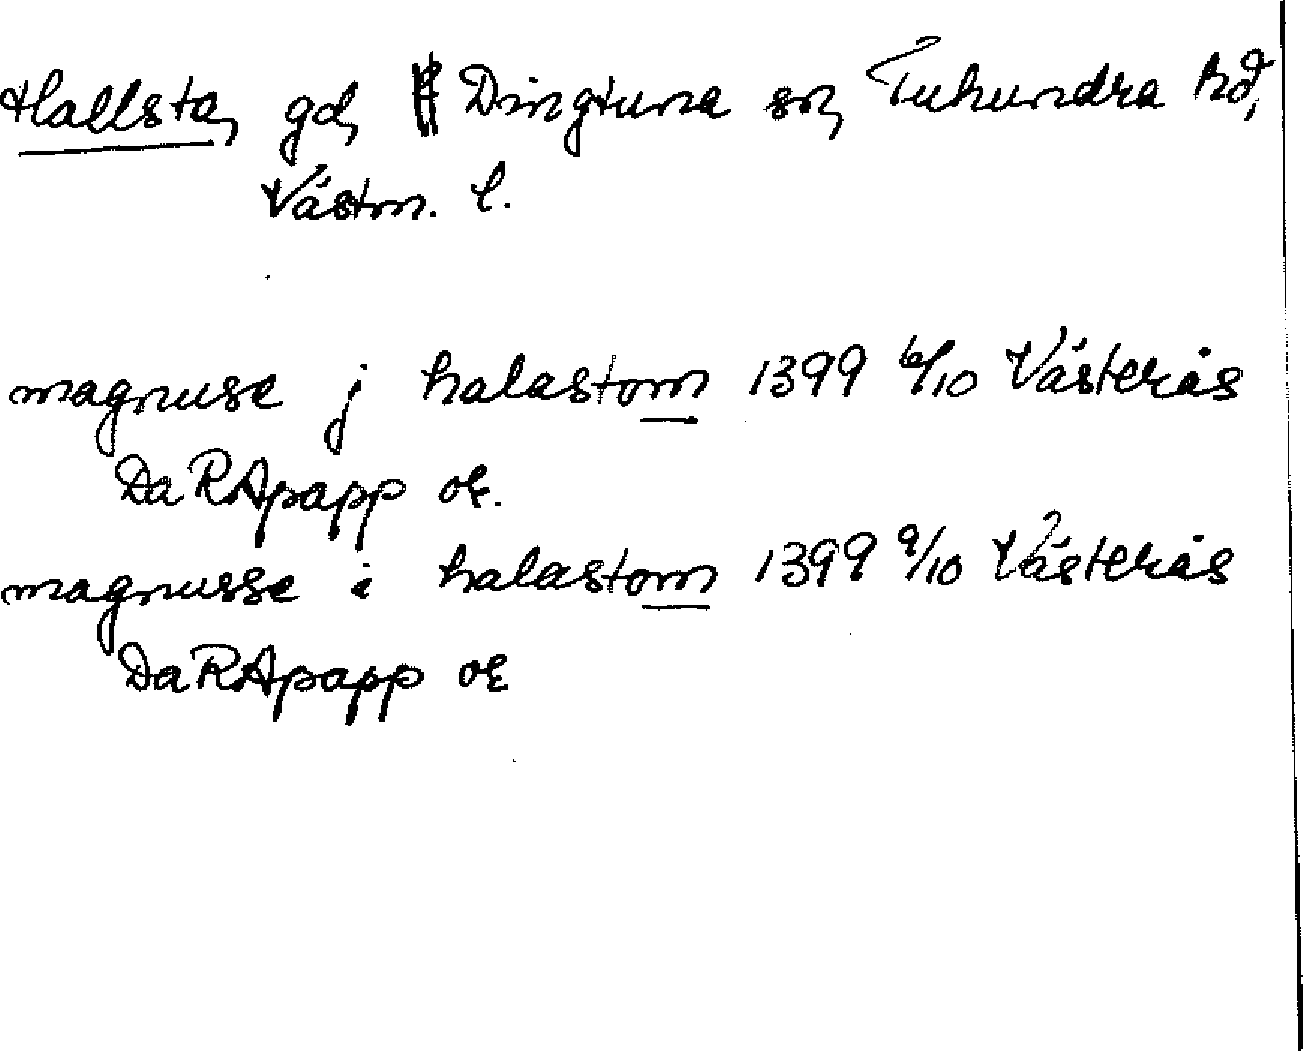 Hallsta, gd, Dingtuna sn, Tuhundra hd,
Västm. l.
magnuse j halastom 1399 6/10 Västerås
Da RApapp or.
magnusse i halastom 1399 9/10 Västerås
Da RApapp or